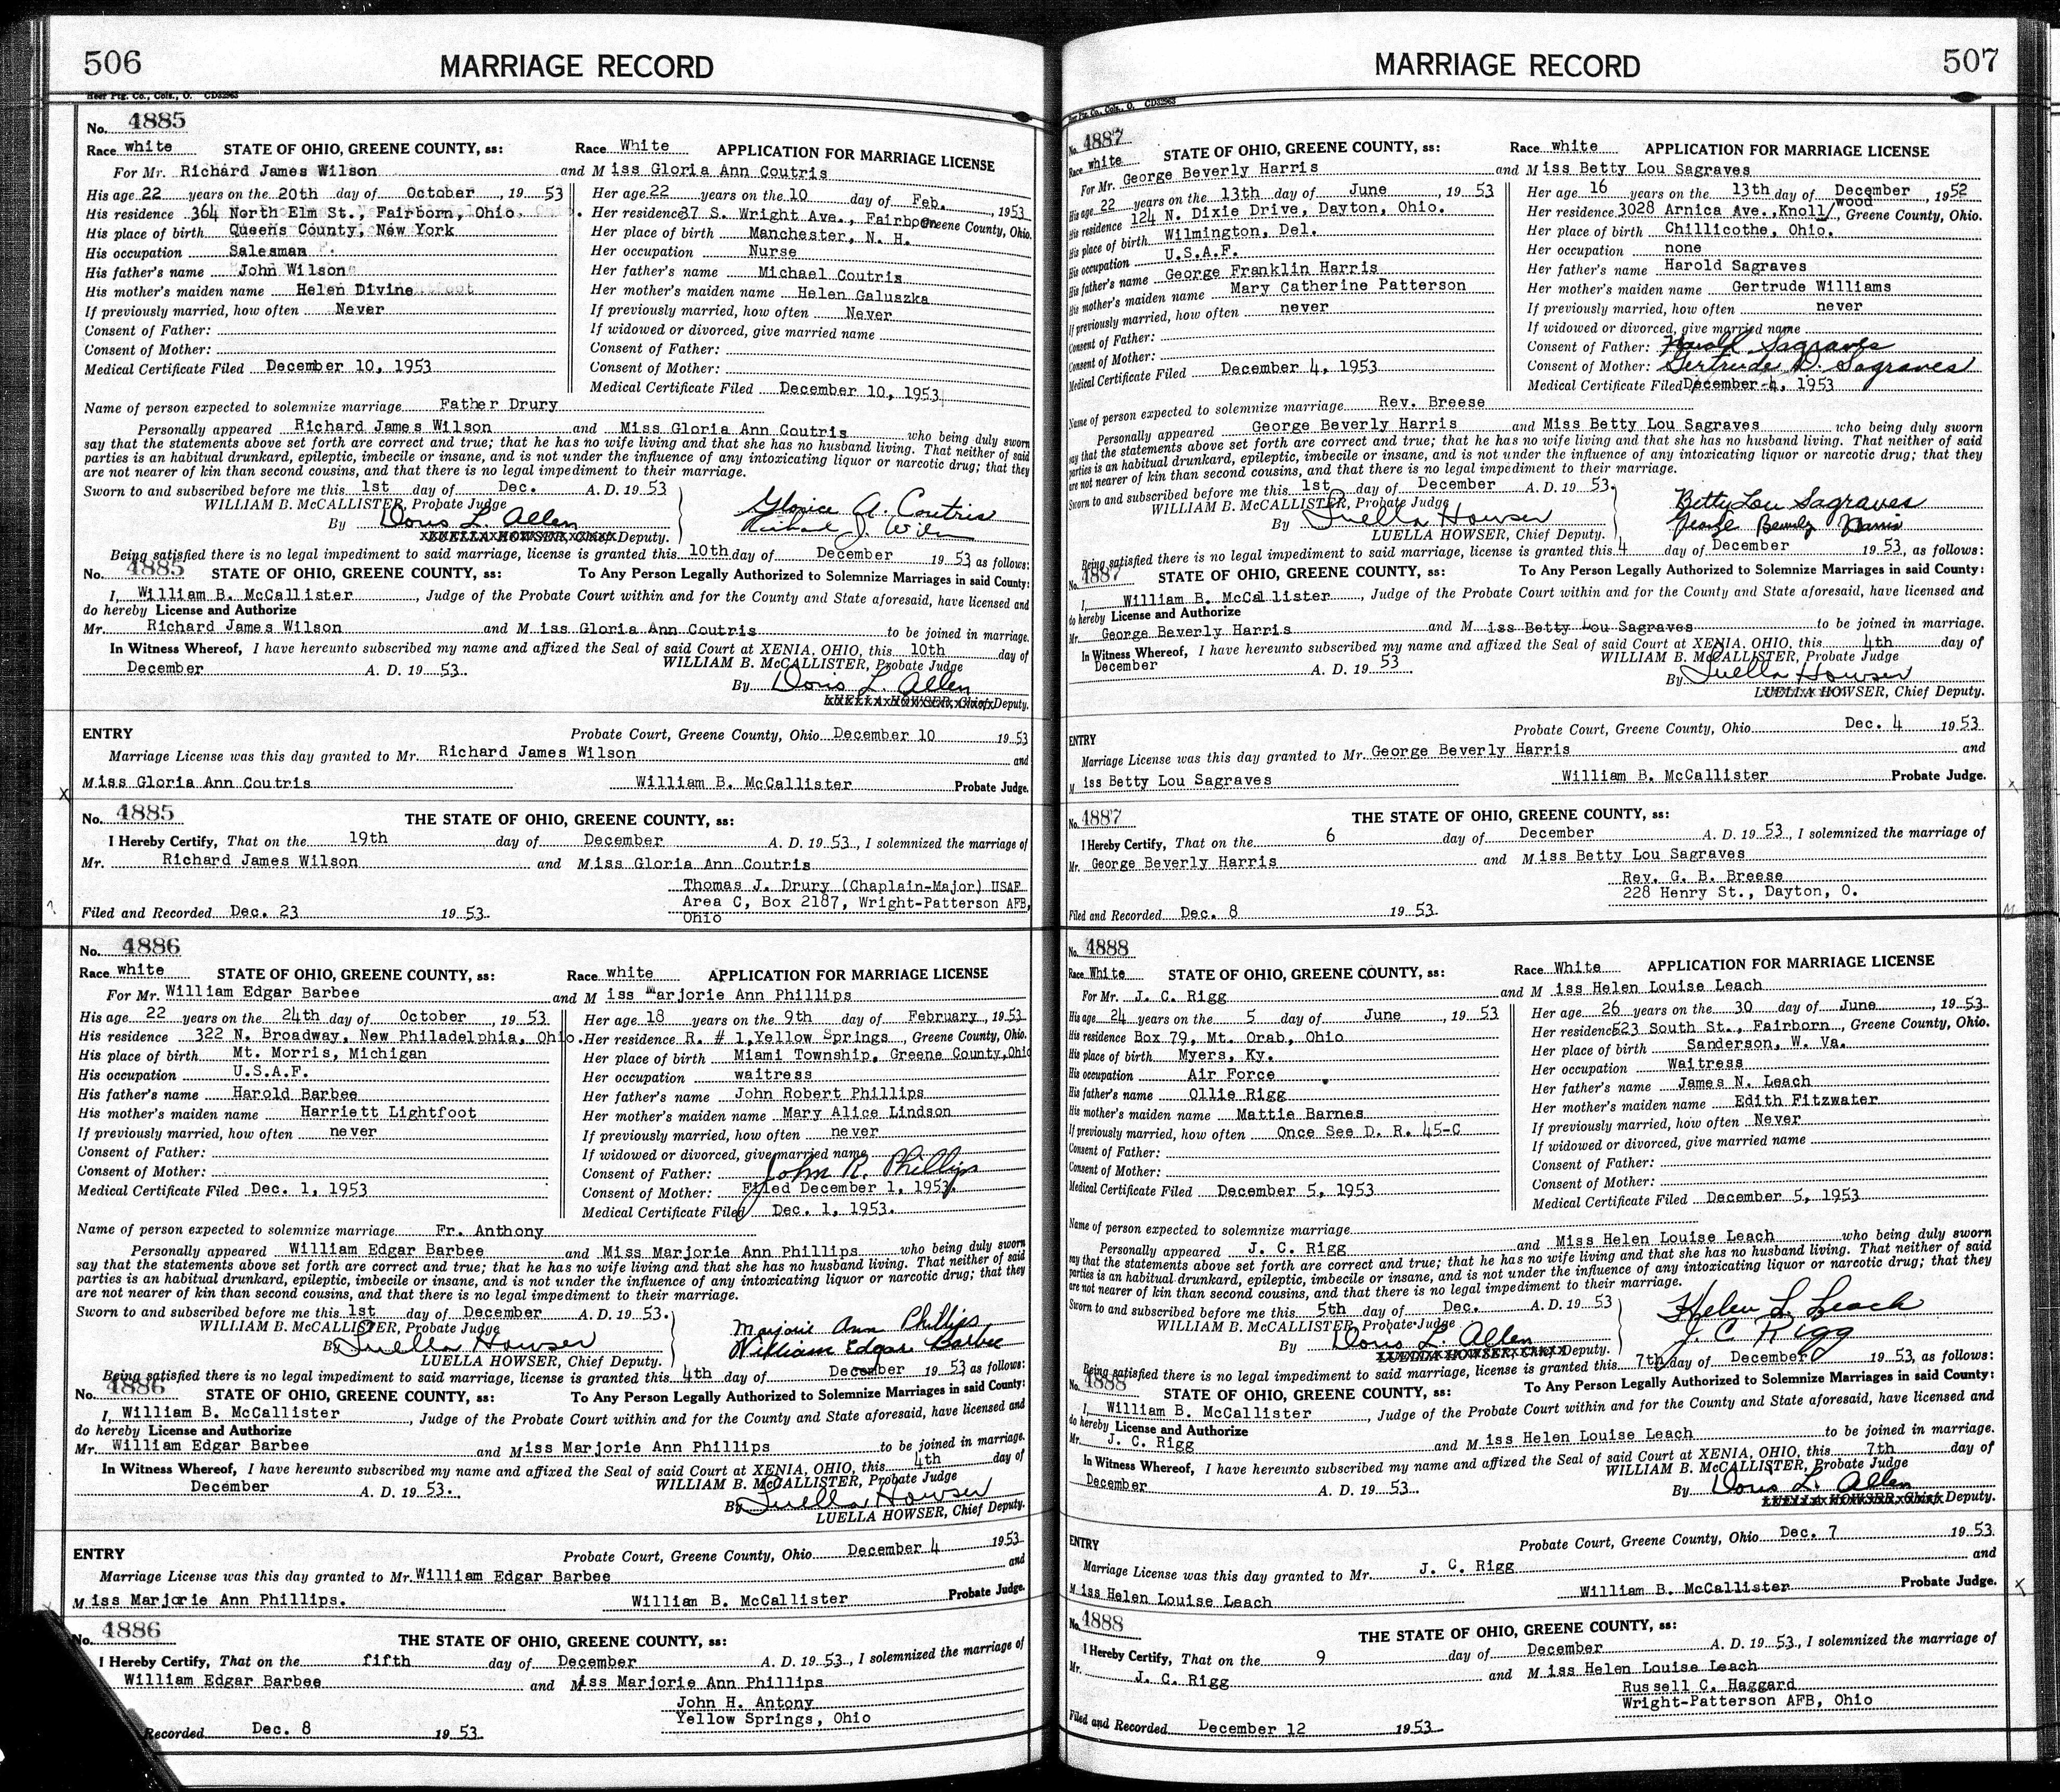 506
MARRIAGE RECORD
Heer Ptg. Co., Cols., O. CD32963
No. 4885
Race white STATE OF OHIO, GREENE COUNTY, ss:
For Mr. Richard James Wilson
His age 22 years on the 20th day of October, 1953
His residence 364 North Elm St., Fairborn, Ohio.
His place of birth Queens County, New York
His occupation Salesman
His father's name John Wilson
His mother's maiden name Helen Divine
If previously married, how often Never
Consent of Father:
Consent of Mother:
Medical Certificate Filed December 10, 1953
Race White APPLICATION FOR MARRIAGE LICENSE
and Miss Gloria Ann Coutris
Her age 22 years on the 10 day of Feb., 1953
Her residence 37 S. Wright Ave., Fairborn Greene County, Ohio.
Her place of birth Manchester, N. H.
Her occupation Nurse
Her father's name Michael Coutris
Her mother's maiden name Helen Galuszka
If previously married, how often Never
If widowed or divorced, give married name
Consent of Father:
Consent of Mother:
Medical Certificate Filed December 10, 1953
Name of person expected to solemnize marriage Father Drury
Personally appeared Richard James Wilson and Miss Gloria Ann Coutris who being duly sworn
say that the statements above set forth are correct and true; that he has no wife living and that she has no husband living. That neither of said
parties is an habitual drunkard, epileptic, imbecile or insane, and is not under the influence of any intoxicating liquor or narcotic drug; that they
are not nearer of kin than second cousins, and that there is no legal impediment to their marriage.
Sworn to and subscribed before me this 1st day of Dec. A. D. 1953
WILLIAM B. McCALLISTER, Probate Judge
By Doris L. Allen
LUELLA HOWSER, Chief Deputy.
Gloria A. Coutris
Richard J. Wilson
Being satisfied there is no legal impediment to said marriage, license is granted this 10th day of December 1953, as follows:
No. 4885 STATE OF OHIO, GREENE COUNTY, ss: To Any Person Legally Authorized to Solemnize Marriages in said County:
I, William B. McCallister, Judge of the Probate Court within and for the County and State aforesaid, have licensed and
do hereby License and Authorize
Mr. Richard James Wilson and Miss Gloria Ann Coutris to be joined in marriage.
In Witness Whereof, I have hereunto subscribed my name and affixed the Seal of said Court at XENIA, OHIO, this 10th day of
December A. D. 1953. WILLIAM B. McCALLISTER, Probate Judge
By Doris L. Allen
LUELLA HOWSER, Chief Deputy.
ENTRY Probate Court, Greene County, Ohio December 10 1953
Marriage License was this day granted to Mr. Richard James Wilson and
Miss Gloria Ann Coutris William B. McCallister Probate Judge.
No. 4885 THE STATE OF OHIO, GREENE COUNTY, ss:
I Hereby Certify, That on the 19th day of December A. D. 1953, I solemnized the marriage of
Mr. Richard James Wilson and Miss Gloria Ann Coutris
Thomas J. Drury (Chaplain-Major) USAF
Area C, Box 2187, Wright-Patterson AFB,
Ohio
Filed and Recorded Dec. 23 1953.
No. 4886
Race white STATE OF OHIO, GREENE COUNTY, ss:
For Mr. William Edgar Barbee
His age 22 years on the 24th day of October, 1953
His residence 322 N. Broadway, New Philadelphia, Ohio.
His place of birth Mt. Morris, Michigan
His occupation U.S.A.F.
His father's name Harold Barbee
His mother's maiden name Harriett Lightfoot
If previously married, how often never
Consent of Father:
Consent of Mother:
Medical Certificate Filed Dec. 1, 1953
Race white APPLICATION FOR MARRIAGE LICENSE
and Miss Marjorie Ann Phillips
Her age 18 years on the 9th day of February, 1953
Her residence R. # 1, Yellow Springs, Greene County, Ohio.
Her place of birth Miami Township, Greene County, Ohio
Her occupation waitress
Her father's name John Robert Phillips
Her mother's maiden name Mary Alice Lindson
If previously married, how often never
If widowed or divorced, give married name
Consent of Father: John R. Phillips
Consent of Mother: Filed December 1, 1953.
Medical Certificate Filed Dec. 1, 1953.
Name of person expected to solemnize marriage Fr. Anthony
Personally appeared William Edgar Barbee and Miss Marjorie Ann Phillips who being duly sworn
say that the statements above set forth are correct and true; that he has no wife living and that she has no husband living. That neither of said
parties is an habitual drunkard, epileptic, imbecile or insane, and is not under the influence of any intoxicating liquor or narcotic drug; that they
are not nearer of kin than second cousins, and that there is no legal impediment to their marriage.
Sworn to and subscribed before me this 1st day of December A. D. 1953.
WILLIAM B. McCALLISTER, Probate Judge
By Luella Howser
LUELLA HOWSER, Chief Deputy.
Marjorie Ann Phillips
William Edgar Barbee
Being satisfied there is no legal impediment to said marriage, license is granted this 4th day of December 1953 as follows:
No. 4886 STATE OF OHIO, GREENE COUNTY, ss: To Any Person Legally Authorized to Solemnize Marriages in said County:
I, William B. McCallister, Judge of the Probate Court within and for the County and State aforesaid, have licensed and
do hereby License and Authorize
Mr. William Edgar Barbee and Miss Marjorie Ann Phillips to be joined in marriage.
In Witness Whereof, I have hereunto subscribed my name and affixed the Seal of said Court at XENIA, OHIO, this 4th day of
December A. D. 1953. WILLIAM B. McCALLISTER, Probate Judge
By Luella Howser
LUELLA HOWSER, Chief Deputy.
ENTRY Probate Court, Greene County, Ohio December 4 1953
Marriage License was this day granted to Mr. William Edgar Barbee and
Miss Marjorie Ann Phillips. William B. McCallister Probate Judge.
No. 4886 THE STATE OF OHIO, GREENE COUNTY, ss:
I Hereby Certify, That on the fifth day of December A. D. 1953, I solemnized the marriage of
William Edgar Barbee and Miss Marjorie Ann Phillips
John H. Antony
Yellow Springs, Ohio
Recorded Dec. 8 1953.
MARRIAGE RECORD
507
Ptg. Co., Cols., O. CD32963
No. 4887
Race white STATE OF OHIO, GREENE COUNTY, ss:
For Mr. George Beverly Harris
His age 22 years on the 13th day of June, 1953
His residence 124 N. Dixie Drive, Dayton, Ohio.
His place of birth Wilmington, Del.
His occupation U.S.A.F.
His father's name George Franklin Harris
His mother's maiden name Mary Catherine Patterson
If previously married, how often never
Consent of Father:
Consent of Mother:
Medical Certificate Filed December 4, 1953
Race white APPLICATION FOR MARRIAGE LICENSE
and Miss Betty Lou Sagraves
Her age 16 years on the 13th day of December, 1952
Her residence 3028 Arnica Ave., Knoll/wood, Greene County, Ohio.
Her place of birth Chillicothe, Ohio.
Her occupation none
Her father's name Harold Sagraves
Her mother's maiden name Gertrude Williams
If previously married, how often never
If widowed or divorced, give married name
Consent of Father: Harold Sagraves
Consent of Mother: Gertrude D. Sagraves
Medical Certificate Filed December 4, 1953
Name of person expected to solemnize marriage Rev. Breese
Personally appeared George Beverly Harris and Miss Betty Lou Sagraves who being duly sworn
say that the statements above set forth are correct and true; that he has no wife living and that she has no husband living. That neither of said
parties is an habitual drunkard, epileptic, imbecile or insane, and is not under the influence of any intoxicating liquor or narcotic drug; that they
are not nearer of kin than second cousins, and that there is no legal impediment to their marriage.
Sworn to and subscribed before me this 1st day of December A. D. 1953.
WILLIAM B. McCALLISTER, Probate Judge
By Luella Howser
LUELLA HOWSER, Chief Deputy.
Betty Lou Sagraves
George Beverly Harris
Being satisfied there is no legal impediment to said marriage, license is granted this 4 day of December 1953, as follows:
No. 4887 STATE OF OHIO, GREENE COUNTY, ss: To Any Person Legally Authorized to Solemnize Marriages in said County:
I, William B. McCallister, Judge of the Probate Court within and for the County and State aforesaid, have licensed and
do hereby License and Authorize
Mr. George Beverly Harris and Miss Betty Lou Sagraves to be joined in marriage.
In Witness Whereof, I have hereunto subscribed my name and affixed the Seal of said Court at XENIA, OHIO, this 4th day of
December A. D. 1953. WILLIAM B. McCALLISTER, Probate Judge
By Luella Howser
LUELLA HOWSER, Chief Deputy.
ENTRY Probate Court, Greene County, Ohio Dec. 4 1953
Marriage License was this day granted to Mr. George Beverly Harris and
Miss Betty Lou Sagraves William B. McCallister Probate Judge.
No. 4887 THE STATE OF OHIO, GREENE COUNTY, ss:
I Hereby Certify, That on the 6 day of December A. D. 1953, I solemnized the marriage of
Mr. George Beverly Harris and Miss Betty Lou Sagraves
Rev. G. B. Breese
228 Henry St., Dayton, O.
Filed and Recorded Dec. 8 1953.
No. 4888
Race White STATE OF OHIO, GREENE COUNTY, ss:
For Mr. J. C. Rigg
His age 24 years on the 5 day of June, 1953
His residence Box 79, Mt. Orab, Ohio
His place of birth Myers, Ky.
His occupation Air Force
His father's name Ollie Rigg
His mother's maiden name Mattie Barnes
If previously married, how often Once See D. R. 45-C
Consent of Father:
Consent of Mother:
Medical Certificate Filed December 5, 1953
Race White APPLICATION FOR MARRIAGE LICENSE
and Miss Helen Louise Leach
Her age 26 years on the 30 day of June, 1953.
Her residence 623 South St., Fairborn, Greene County, Ohio.
Her place of birth Sanderson, W. Va.
Her occupation Waitress
Her father's name James N. Leach
Her mother's maiden name Edith Fitzwater
If previously married, how often Never
If widowed or divorced, give married name
Consent of Father:
Consent of Mother:
Medical Certificate Filed December 5, 1953
Name of person expected to solemnize marriage
Personally appeared J. C. Rigg and Miss Helen Louise Leach who being duly sworn
say that the statements above set forth are correct and true; that he has no wife living and that she has no husband living. That neither of said
parties is an habitual drunkard, epileptic, imbecile or insane, and is not under the influence of any intoxicating liquor or narcotic drug; that they
are not nearer of kin than second cousins, and that there is no legal impediment to their marriage.
Sworn to and subscribed before me this 5th day of Dec. A. D. 1953
WILLIAM B. McCALLISTER, Probate Judge
By Doris L. Allen
LUELLA HOWSER, Chief Deputy.
Helen L. Leach
J. C. Rigg
Being satisfied there is no legal impediment to said marriage, license is granted this 7th day of December 1953, as follows:
No. 4888 STATE OF OHIO, GREENE COUNTY, ss: To Any Person Legally Authorized to Solemnize Marriages in said County:
I, William B. McCallister, Judge of the Probate Court within and for the County and State aforesaid, have licensed and
do hereby License and Authorize
Mr. J. C. Rigg and Miss Helen Louise Leach to be joined in marriage.
In Witness Whereof, I have hereunto subscribed my name and affixed the Seal of said Court at XENIA, OHIO, this 7th day of
December A. D. 1953. WILLIAM B. McCALLISTER, Probate Judge
By Doris L. Allen
LUELLA HOWSER, Chief Deputy.
ENTRY Probate Court, Greene County, Ohio Dec. 7 1953
Marriage License was this day granted to Mr. J. C. Rigg and
Miss Helen Louise Leach William B. McCallister Probate Judge.
No. 4888 THE STATE OF OHIO, GREENE COUNTY, ss:
I Hereby Certify, That on the 9 day of December A. D. 1953, I solemnized the marriage of
Mr. J. C. Rigg and Miss Helen Louise Leach
Russell C. Haggard
Wright-Patterson AFB, Ohio
Filed and Recorded December 12 1953.